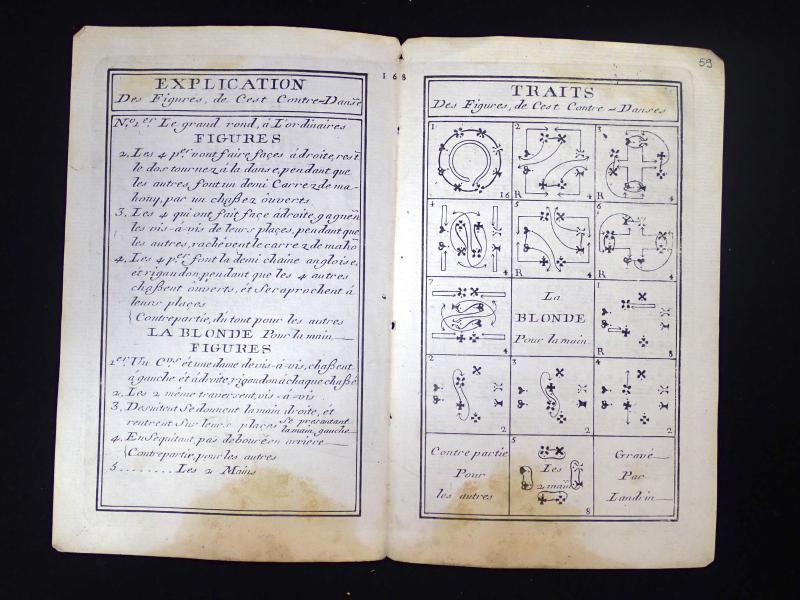 EXPLICATION
Des Figures, de Cest Contre=Danse
N.o 1.er Le grand rond, à L'ordinaires
FIGURES
2. Les 4 p.er vont faire façes à droite, rest.t
le dos tournez à la danse, pendant que
les autres font un demi Carrez de ma-
hony, par un chaßez ôuverts.
3. Les 4 qui ont fait façe à droite, gagnen.t
les vis-à-vis de leurs plaçes, pendant que
les autres, rachévent le carrez de mahô
4. Les 4 p.er font la demi chaîne angloise,
et rigaudon pendant que les 4 autres
chaßent ôuverts, et Se raprochent à
leurs plaçes
Contrepartie, du tout pour les autres
LA BLONDE Pour la main
FIGURES
1.er Un Cv.er ét une dame de vis-à-vis, chaßent
à gauche et à droite, rigaudon à chaque chaßé
2. Les 2 même traversent, vis-à-vis
3. De suitout Se donnent la main droite, ét
rentrent Sur leurs plaçes Se présentant
la main gauche
4. En Sequitant pas de bourée en arriere
Contrepartie pour les autres
5 ........ Les 2 Mains
168
59
TRAITS
Des Figures, de Cest Contre=Danses
1 2 3
16 R 4 R 4
4 5 6
4 R 4 R 4
7 La BLONDE Pour la main 1
4 R 8
2 3 4
2 2 2
Contre partie Pour les autres
5 Les 2 mains 8
Gravé Par Landrin